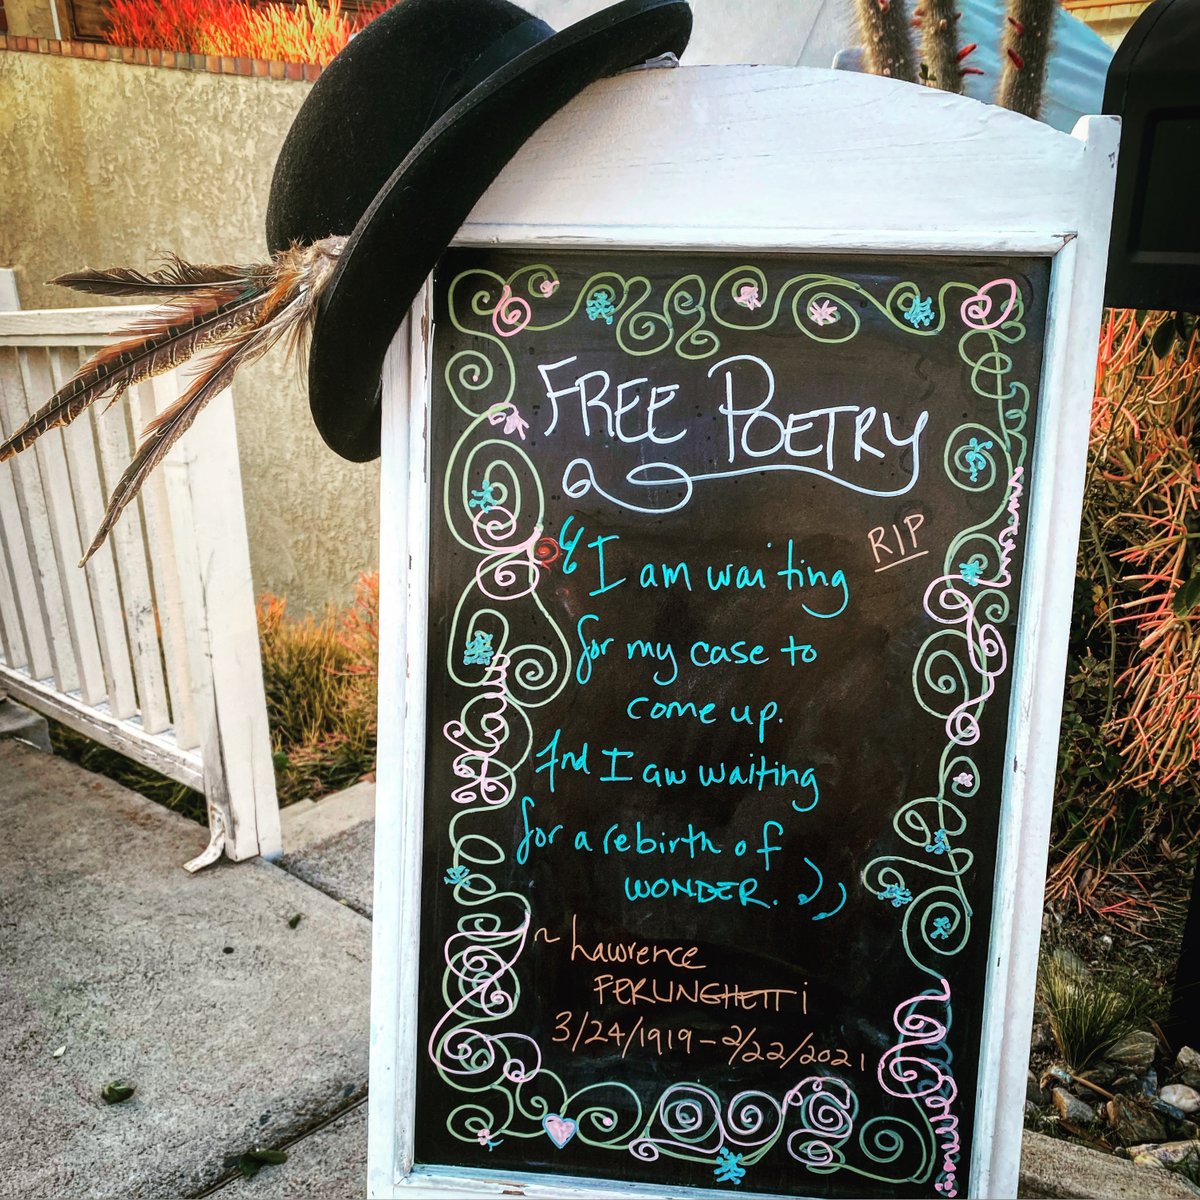 FREE POETRY
RIP
"I am waiting
for my case to
come up.
And I am waiting
for a rebirth of
WONDER."
~ Lawrence
FERLINGHETTI
3/24/1919 - 2/22/2021